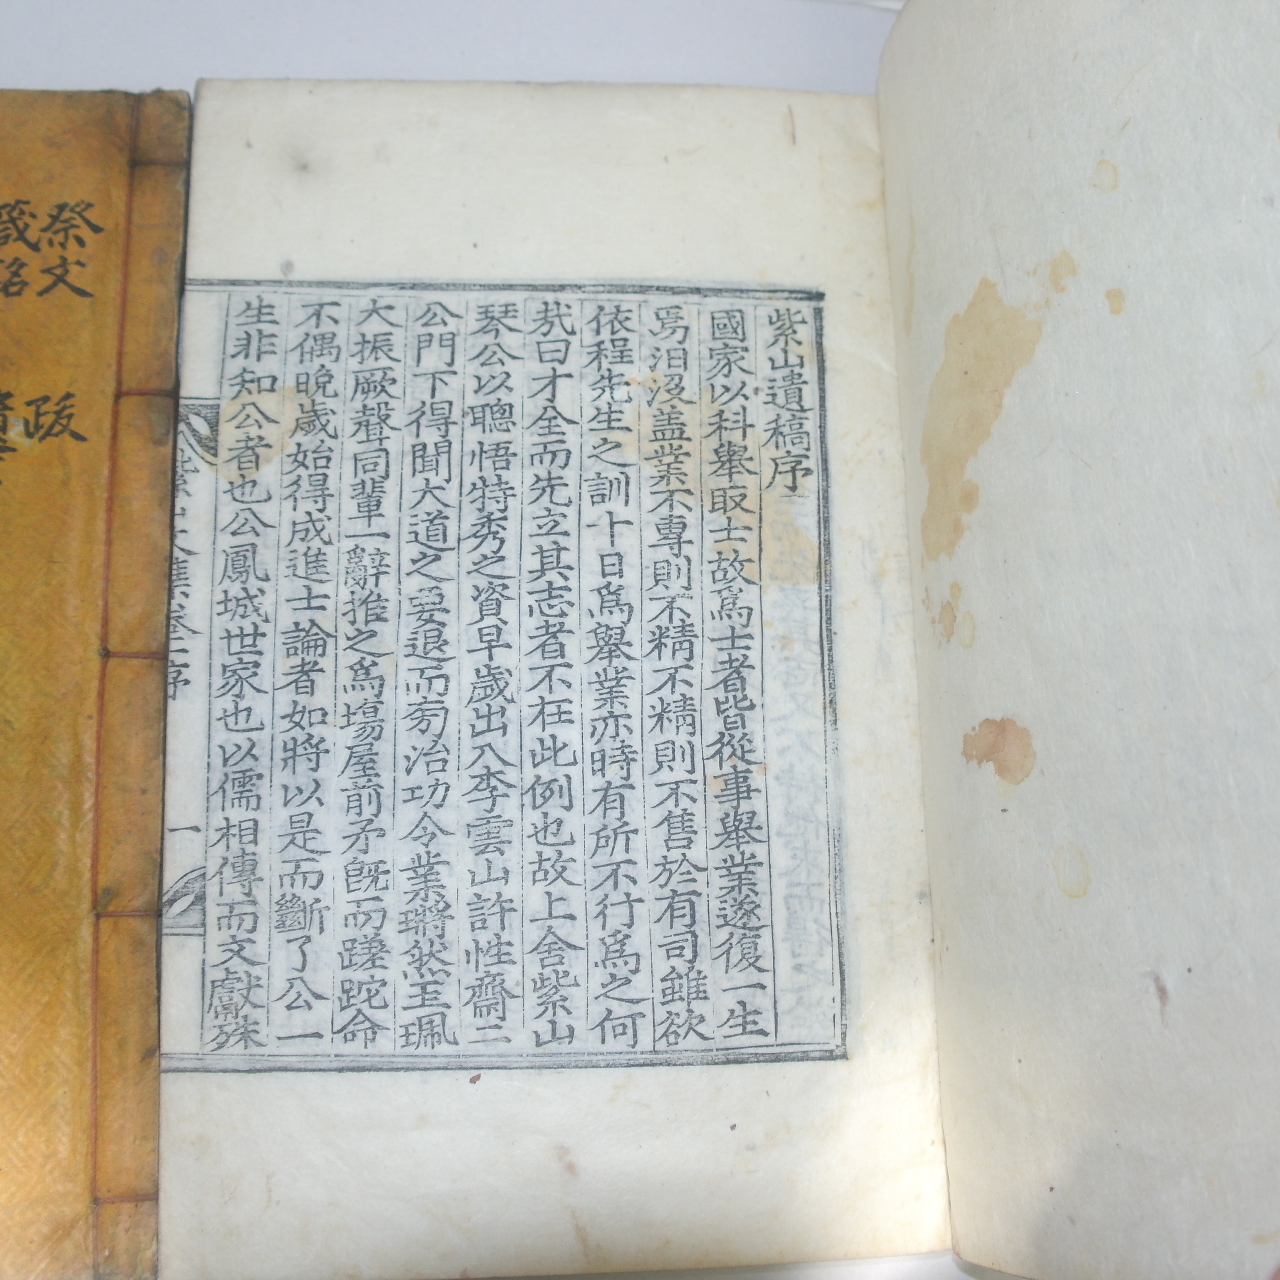 紫山遺稿序
國家以科舉取士故爲士者皆從事舉業遂復一生
焉汨沒盖業不專則不精不精則不售於有司雖欲
依程先生之訓十日爲舉業亦時有所不行爲之何
㢤曰才全而先立其志者不在此例也故上舍紫山
琴公以聰悟特秀之資早歲出入李雲山許性齋二
公門下得聞大道之要退而旁治功令業瓓然玉珮
大振厥聲同輩一辭推之爲塲屋前矛旣而蹉跎命
不偶晚歲始得成進士論者如將以是而斷了公一
生非知公者也公鳳城世家也以儒相傳而文獻殊
序
一
祭文
箴銘
跋